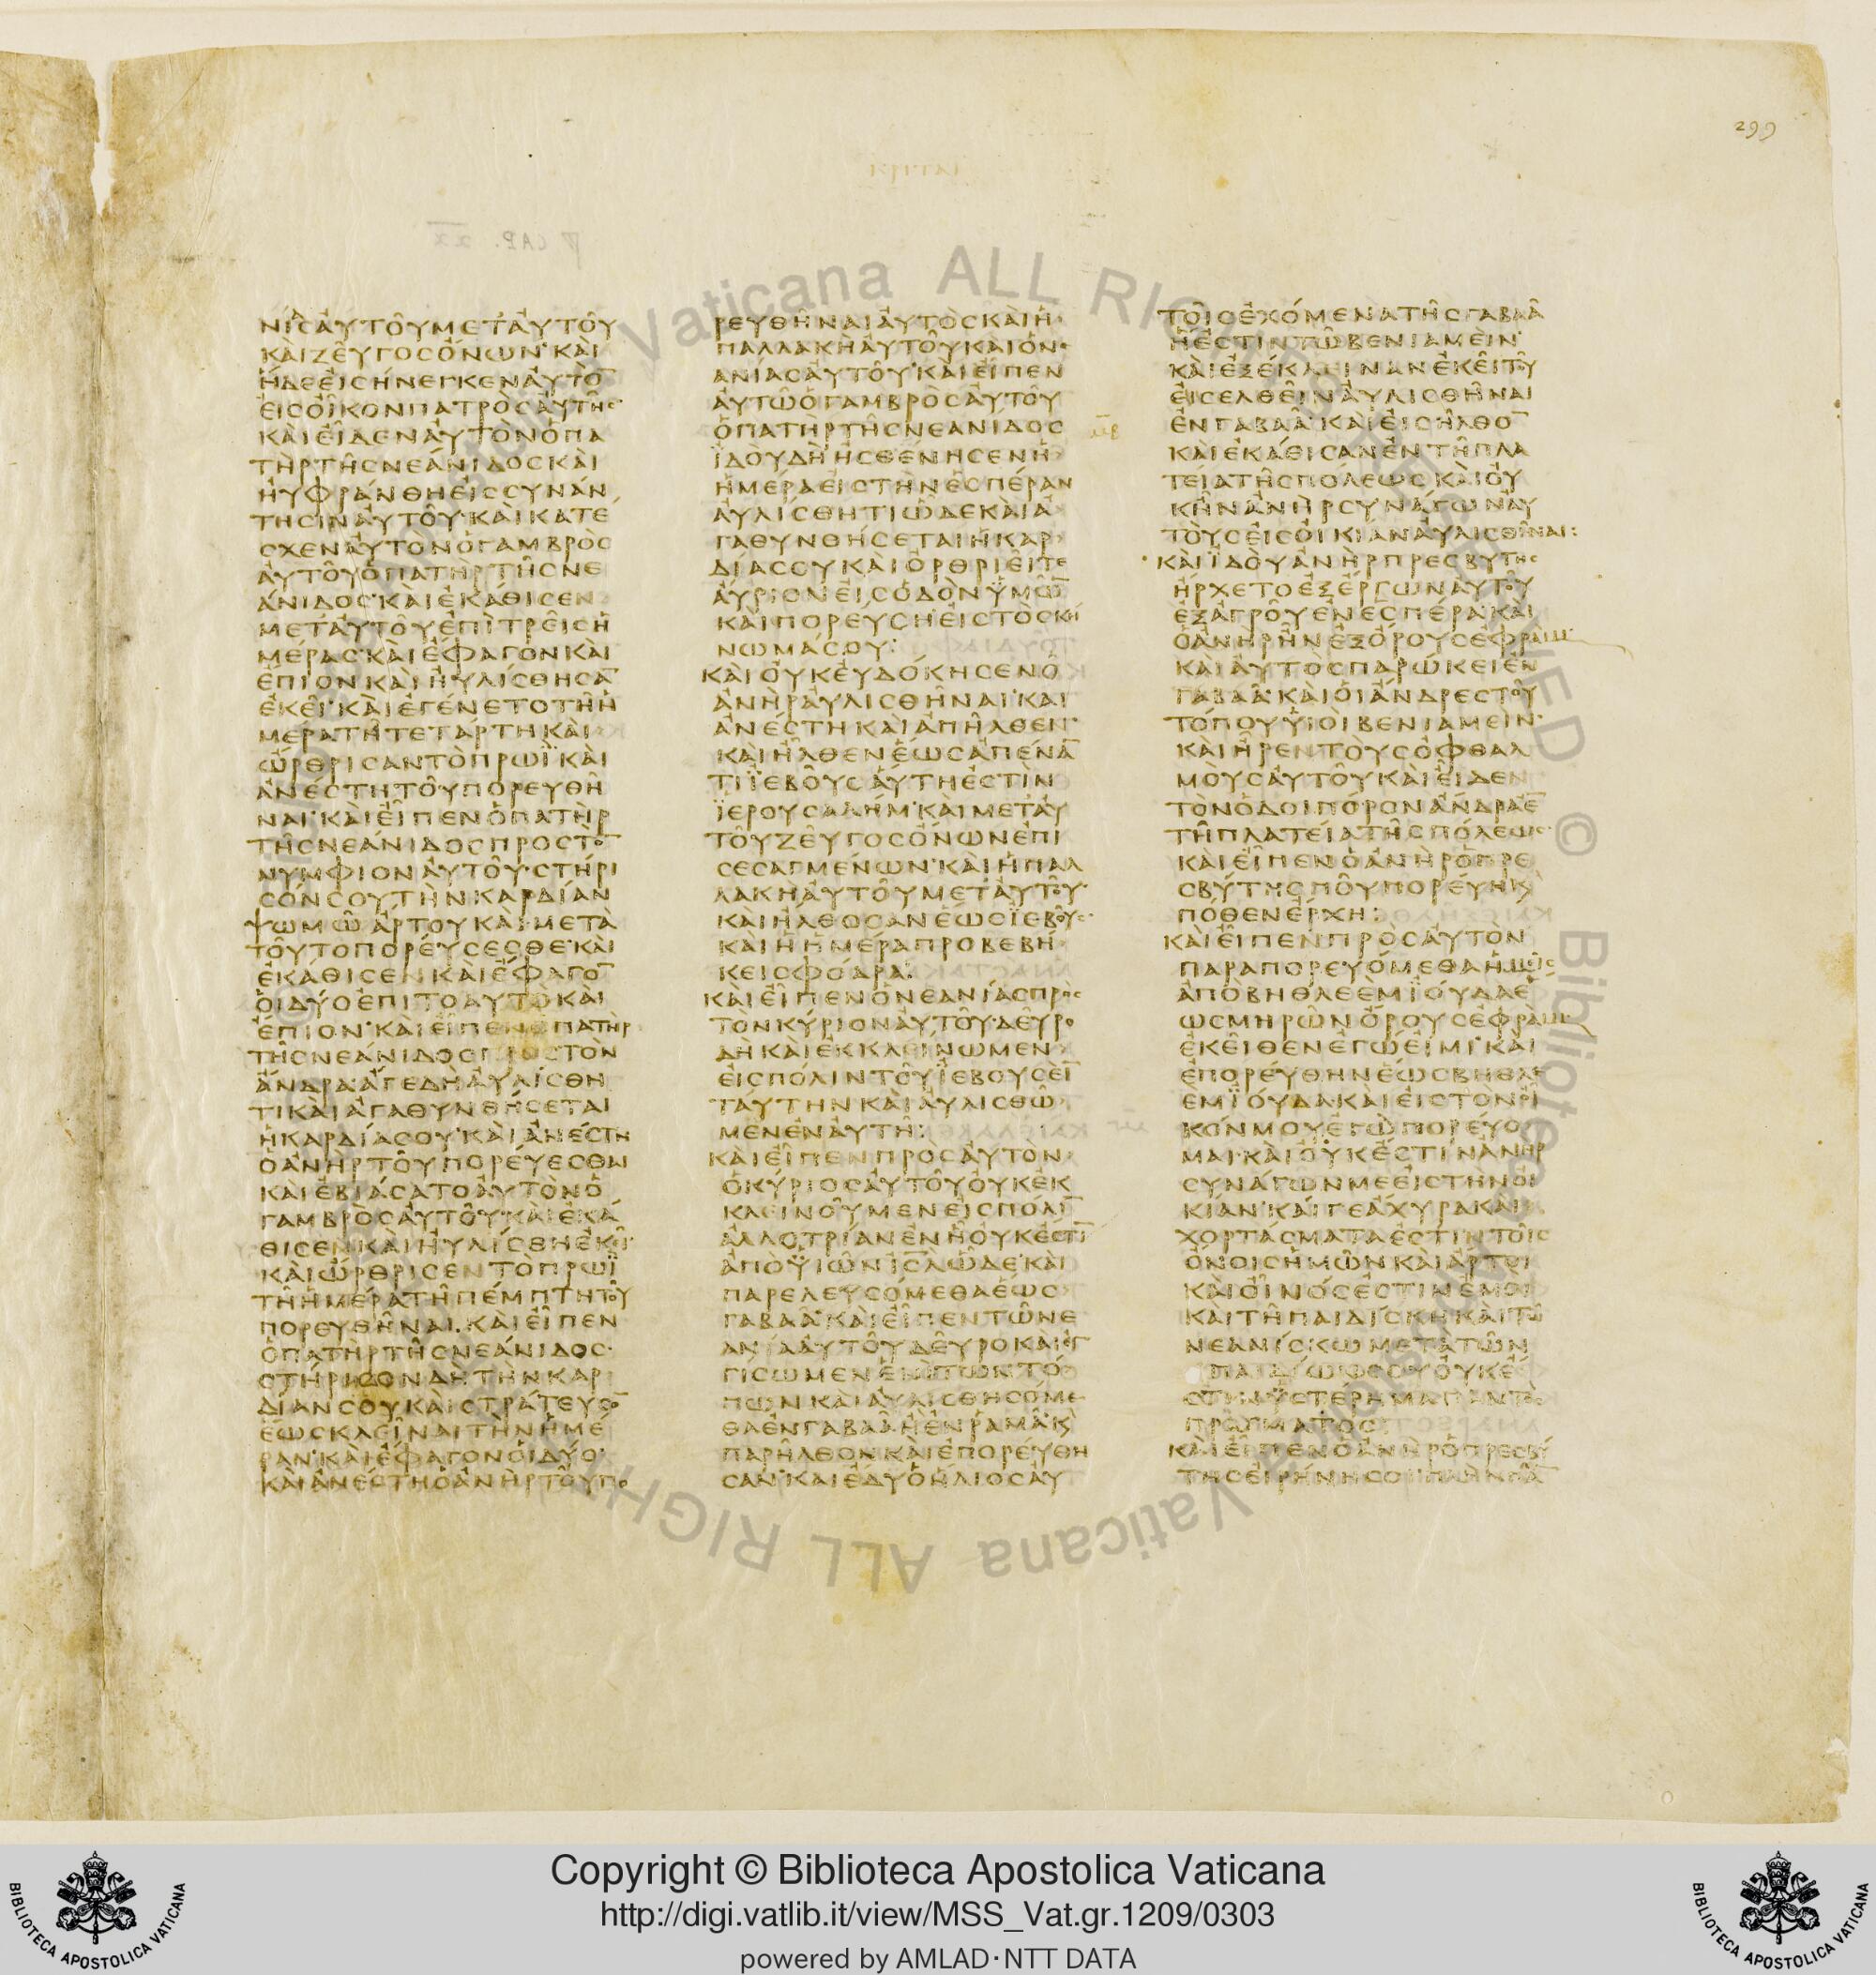 299
ΝΙΑϹΑΥΤΟΥΜΕΤΑΥΤΟΥ
ΚΑΙΖΕΥΓΟϹΟΝΩΝΚΑΙ
ΗΔΕΕΙϹΗΝΕΓΚΕΝΑΥΤΟ̅
ΕΙϹΟΙΚΟΝΠΑΤΡΟϹΑΥΤΗϹ
ΚΑΙΕΙΔΕΝΑΥΤΟΝΟΠΑ
ΤΗΡΤΗϹΝΕΑΝΙΔΟϹΚΑΙ
ΗΥΦΡΑΝΘΗΕΙϹϹΥΝΑΝ
ΤΗϹΙΝΑΥΤΟΥΚΑΙΚΑΤΕ
ϹΧΕΝΑΥΤΟΝΟΓΑΜΒΡΟϹ
ΑΥΤΟΥΟΠΑΤΗΡΤΗϹΝΕ
ΑΝΙΔΟϹΚΑΙΕΚΑΘΙϹΕΝ
ΜΕΤΑΥΤΟΥΕΠΙΤΡΕΙϹΗ
ΜΕΡΑϹΚΑΙΕΦΑΓΟΝΚΑΙ
ΕΠΙΟΝΚΑΙΗΥΛΙϹΘΗϹΑ̅
ΕΚΕΙΚΑΙΕΓΕΝΕΤΟΤΗΗ
ΜΕΡΑΤΗΤΕΤΑΡΤΗΚΑΙ
ΩΡΘΡΙϹΑΝΤΟΠΡΩΪΚΑΙ
ΑΝΕϹΤΗΤΟΥΠΟΡΕΥΘΗ
ΝΑΙΚΑΙΕΙΠΕΝΟΠΑΤΗΡ
ΤΗϹΝΕΑΝΙΔΟϹΠΡΟϹΤΟ̅
ΝΥΜΦΙΟΝΑΥΤΟΥϹΤΗΡΙ
ϹΟΝϹΟΥΤΗΝΚΑΡΔΙΑΝ
ΨΩΜΩΑΡΤΟΥΚΑΙΜΕΤΑ
ΤΟΥΤΟΠΟΡΕΥϹΕϹΘΕΚΑΙ
ΕΚΑΘΙϹΕΝΚΑΙΕΦΑΓΟ̅
ΟΙΔΥΟΕΠΙΤΟΑΥΤΟΚΑΙ
ΕΠΙΟΝΚΑΙΕΙΠΕΝΟΠΑΤΗΡ
ΤΗϹΝΕΑΝΙΔΟϹΠΡΟϹΤΟΝ
ΑΝΔΡΑΑΓΕΔΗΑΥΛΙϹΘΗ
ΤΙΚΑΙΑΓΑΘΥΝΘΗϹΕΤΑΙ
ΗΚΑΡΔΙΑϹΟΥΚΑΙΑΝΕϹΤΗ
ΟΑΝΗΡΤΟΥΠΟΡΕΥΕϹΘΑΙ
ΚΑΙΕΒΙΑϹΑΤΟΑΥΤΟΝΟ
ΓΑΜΒΡΟϹΑΥΤΟΥΚΑΙΕΚΑ
ΘΙϹΕΝΚΑΙΗΥΛΙϹΘΗΕΚΕΙ
ΚΑΙΩΡΘΡΙϹΕΝΤΟΠΡΩΪ
ΤΗΗΜΕΡΑΤΗΠΕΜΠΤΗΤΟΥ
ΠΟΡΕΥΘΗΝΑΙΚΑΙΕΙΠΕΝ
ΟΠΑΤΗΡΤΗϹΝΕΑΝΙΔΟϹ
ϹΤΗΡΙϹΟΝΔΗΤΗΝΚΑΡ
ΔΙΑΝϹΟΥΚΑΙϹΤΡΑΤΕΥϹΟ̅
ΕΩϹΚΛΕΙΝΑΙΤΗΝΗΜΕ
ΡΑΝΚΑΙΕΦΑΓΟΝΟΙΔΥΟ
ΚΑΙΑΝΕϹΤΗΟΑΝΗΡΤΟΥΠΟ
ΡΕΥΘΗΝΑΙΑΥΤΟϹΚΑΙΗ
ΠΑΛΛΑΚΗΑΥΤΟΥΚΑΙΟΝ
ΑΝΙΑϹΑΥΤΟΥΚΑΙΕΙΠΕΝ
ΑΥΤΩΟΓΑΜΒΡΟϹΑΥΤΟΥ
ΟΠΑΤΗΡΤΗϹΝΕΑΝΙΔΟϹ
ΪΔΟΥΔΗΗϹΘΕΝΗϹΕΝΗ
ΗΜΕΡΑΕΙϹΤΗΝΕϹΠΕΡΑΝ
ΑΥΛΙϹΘΗΤΙΩΔΕΚΑΙΑ
ΓΑΘΥΝΘΗϹΕΤΑΙΗΚΑΡ
ΔΙΑϹΟΥΚΑΙΟΡΘΡΙΕΙΤΕ
ΑΥΡΙΟΝΕΙϹΟΔΟΝΫΜΩ̅
ΚΑΙΠΟΡΕΥϹΗΕΙϹΤΟϹΚΗ
ΝΩΜΑϹΟΥ
ΚΑΙΟΥΚΕΥΔΟΚΗϹΕΝΟ
ΑΝΗΡΑΥΛΙϹΘΗΝΑΙΚΑΙ
ΑΝΕϹΤΗΚΑΙΑΠΗΛΘΕΝ
ΚΑΙΗΛΘΕΝΕΩϹΑΠΕΝΑ̅
ΤΙΪΕΒΟΥϹΑΥΤΗΕϹΤΙΝ
ΪΕΡΟΥϹΑΛΗΜΚΑΙΜΕΤΑΥ
ΤΟΥΖΕΥΓΟϹΟΝΩΝΕΠΙ
ϹΕϹΑΓΜΕΝΩΝΚΑΙΗΠΑΛ
ΛΑΚΗΑΥΤΟΥΜΕΤΑΥΤΟΥ
ΚΑΙΗΛΘΟϹΑΝΕΩϹΪΕΒΟΥϹ
ΚΑΙΗΗΜΕΡΑΠΡΟΒΕΒΗ
ΚΕΙϹΦΟΔΡΑ
ΚΑΙΕΙΠΕΝΟΝΕΑΝΙΑϹΠΡΟϹ
ΤΟΝΚΥΡΙΟΝΑΥΤΟΥΔΕΥΡΟ
ΔΗΚΑΙΕΚΚΛΕΙΝΩΜΕΝ
ΕΙϹΠΟΛΙΝΤΟΥΪΕΒΟΥϹΕΙ̅
ΤΑΥΤΗΝΚΑΙΑΥΛΙϹΘΩ
ΜΕΝΕΝΑΥΤΗ
ΚΑΙΕΙΠΕΝΠΡΟϹΑΥΤΟΝ
ΟΚΥΡΙΟϹΑΥΤΟΥΟΥΚΕΚ
ΚΛΕΙΝΟΥΜΕΝΕΙϹΠΟΛΙ̅
ΑΛΛΟΤΡΙΑΝΕΝΗΟΥΚΕϹΤΙ̅
ΑΠΟΫΙΩΝΙϹΛΩΔΕΚΑΙ
ΠΑΡΕΛΕΥϹΟΜΕΘΑΕΩϹ
ΓΑΒΑΑΚΑΙΕΙΠΕΝΤΩΝΕ
ΑΝΙΑΑΥΤΟΥΔΕΥΡΟΚΑΙΕΓ
ΓΙϹΩΜΕΝΕΝΙΤΩΝΤΟ
ΠΩΝΚΑΙΑΥΛΙϹΘΗϹΟΜΕ
ΘΑΕΝΓΑΒΑΑΗΕΝΡΑΜΑΚΑΙ
ΠΑΡΗΛΘΟΝΚΑΙΕΠΟΡΕΥΘΗ
ϹΑΝΚΑΙΕΔΥΟΗΛΙΟϹΑΥ
ΤΟΙϹΕΧΟΜΕΝΑΤΗϹΓΑΒΑΑ
ΗΕϹΤΙΝΤΩΒΕΝΙΑΜΕΙΝ
ΚΑΙΕΞΕΚΛΕΙΝΑΝΕΚΕΙΤΟΥ
ΕΙϹΕΛΘΕΙΝΑΥΛΙϹΘΗΝΑΙ
ΕΝΓΑΒΑΑΚΑΙΕΙϹΗΛΘΟ̅
ΚΑΙΕΚΑΘΙϹΑΝΕΝΤΗΠΛΑ
ΤΕΙΑΤΗϹΠΟΛΕΩϹΚΑΙΟΥ
ΚΗΝΑΝΗΡϹΥΝΑΓΩΝΑΥ
ΤΟΥϹΕΙϹΟΙΚΙΑΝΑΥΛΙϹΘΗΝΑΙ
ΚΑΙΪΔΟΥΑΝΗΡΠΡΕϹΒΥΤΗϹ
ΗΡΧΕΤΟΕΞΕΡΓΩΝΑΥΤΟΥ
ΕΞΑΓΡΟΥΕΝΕϹΠΕΡΑΚΑΙ
ΟΑΝΗΡΗΝΕΞΟΡΟΥϹΕΦΡΑΙΜ
ΚΑΙΑΥΤΟϹΠΑΡΩΚΕΙΕΝ
ΓΑΒΑΑΚΑΙΟΙΑΝΔΡΕϹΤΟΥ
ΤΟΠΟΥΫΙΟΙΒΕΝΙΑΜΕΙΝ
ΚΑΙΗΡΕΝΤΟΥϹΟΦΘΑΛ
ΜΟΥϹΑΥΤΟΥΚΑΙΕΙΔΕΝ
ΤΟΝΟΔΟΙΠΟΡΟΝΑΝΔΡΑΕ̅
ΤΗΠΛΑΤΕΙΑΤΗϹΠΟΛΕΩϹ
ΚΑΙΕΙΠΕΝΟΑΝΗΡΟΠΡΕ
ϹΒΥΤΗϹΠΟΥΠΟΡΕΥΗΚΑΙ
ΠΟΘΕΝΕΡΧΗ
ΚΑΙΕΙΠΕΝΠΡΟϹΑΥΤΟΝ
ΠΑΡΑΠΟΡΕΥΟΜΕΘΑΗΜΕΙϹ
ΑΠΟΒΗΘΛΕΕΜΪΟΥΔΑΕ
ΩϹΜΗΡΩΝΟΡΟΥϹΕΦΡΑΙΜ
ΕΚΕΙΘΕΝΕΓΩΕΙΜΙΚΑΙ
ΕΠΟΡΕΥΘΗΝΕΩϹΒΗΘΛΕ
ΕΜΪΟΥΔΑΚΑΙΕΙϹΤΟΝΟΙ
ΚΟΝΜΟΥΕΓΩΠΟΡΕΥΟ
ΜΑΙΚΑΙΟΥΚΕϹΤΙΝΑΝΗΡ
ϹΥΝΑΓΩΝΜΕΕΙϹΤΗΝΟΙ
ΚΙΑΝΚΑΙΓΕΑΧΥΡΑΚΑΙ
ΧΟΡΤΑϹΜΑΤΑΕϹΤΙΝΤΟΙϹ
ΟΝΟΙϹΗΜΩΝΚΑΙΑΡΤΟΙ
ΚΑΙΟΙΝΟϹΕϹΤΙΝΕΜΟΙ
ΚΑΙΤΗΠΑΙΔΙϹΚΗΚΑΙΤΩ
ΝΕΑΝΙϹΚΩΜΕΤΑΤΩΝ
ΠΑΙΔΙΩΝϹΟΥΟΥΚΕ
ϹΤΙΝΫϹΤΕΡΗΜΑΠΑΝΤΟϹ
ΠΡΑΓΜΑΤΟϹ
ΚΑΙΕΙΠΕΝΟΑΝΗΡΟΠΡΕϹΒΥ
ΤΗϹΕΙΡΗΝΗϹΟΙΠΛΗΝΠΑ̅
Copyright © Biblioteca Apostolica Vaticana
http://digi.vatlib.it/view/MSS_Vat.gr.1209/0303
powered by AMLAD·NTT DATA
BIBLIOTECA APOSTOLICA VATICANA
BIBLIOTECA APOSTOLICA VATICANA